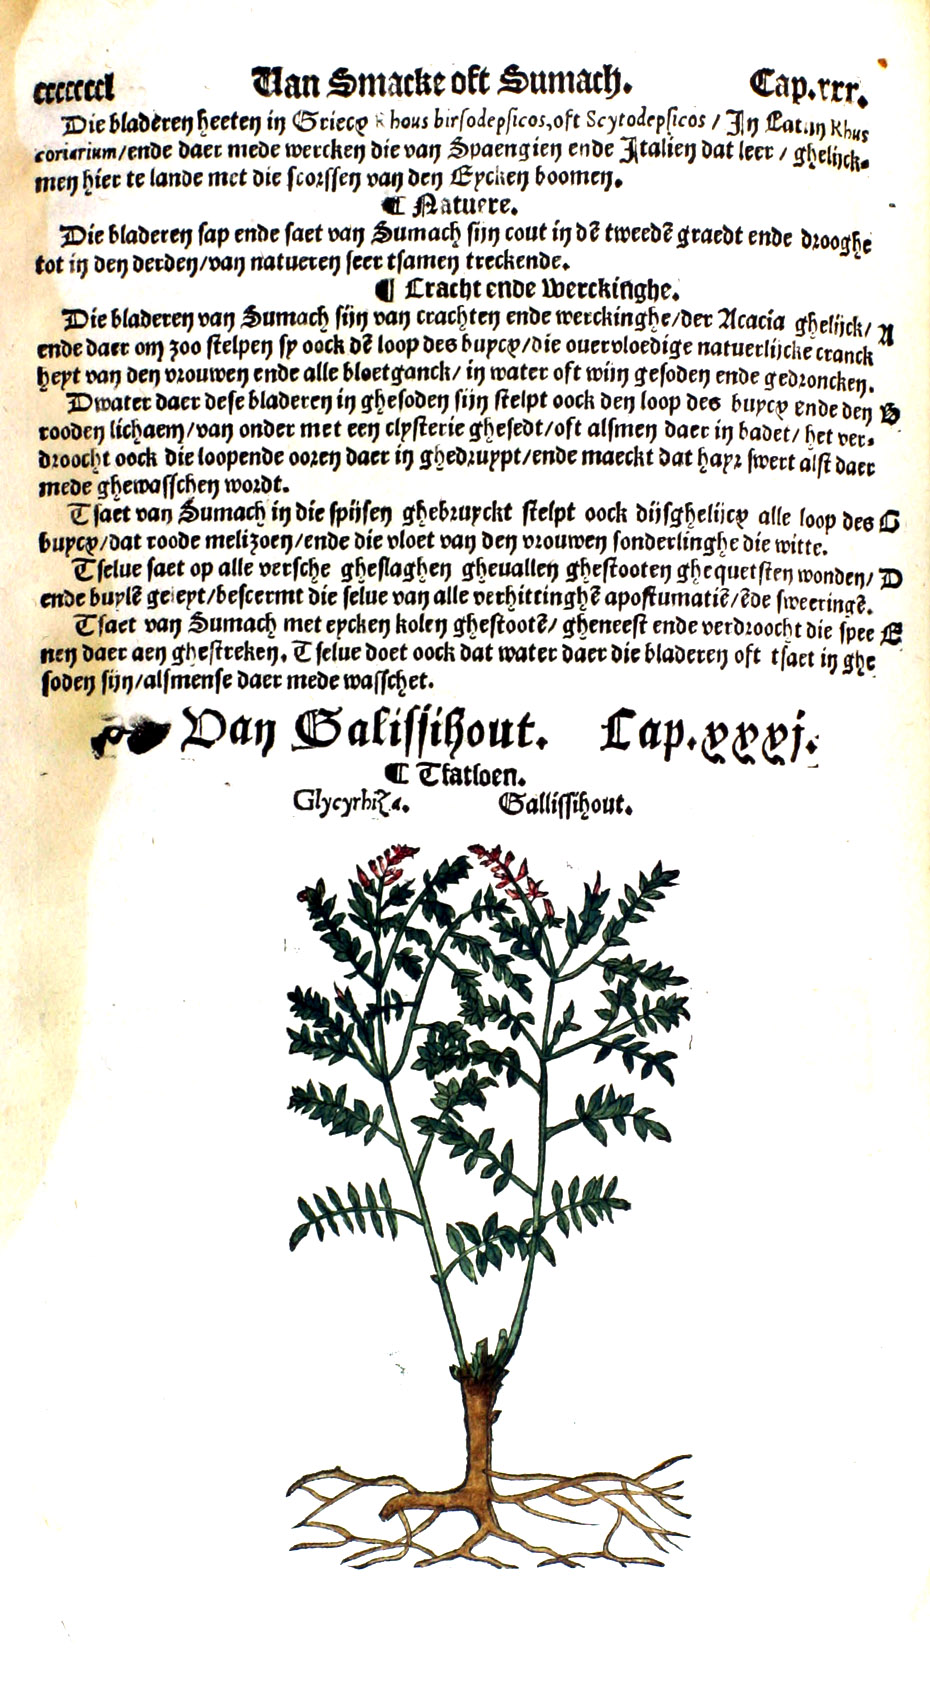 ccccccl Van Smacke oft Sumach. Cap.xxx.
Die bladeren heeten in Griecx Rhous birsodepsicos, oft Scytodepsicos / In Latijn Rhus
coriarium/ende daer mede wercken die van Spaengien ende Italien dat leer / ghelijck-
men hier te lande met die scorssen van den Eycken boomen.
¶ Natuere.
Die bladeren sap ende saet van Sumach sijn cout in dē tweedē graedt ende drooghe
tot in den derden/van natueren seer tsamen treckende.
¶ Cracht ende Werckinghe.
Die bladeren van Sumach sijn van crachten ende werckinghe/der Acacia ghelijck/ A
ende daer om zoo stelpen sy oock dē loop des buycx/die ouervloedige natuerlijcke cranck
heyt van den vrouwen ende alle bloetganck/ in water oft wijn gesoden ende gedroncken.
Dwater daer dese bladeren in ghesoden sijn stelpt oock den loop des buycx ende den B
rooden lichaem/van onder met een clysterie ghesedt/oft alsmen daer in badet/ het ver-
droocht oock die loopende ooren daer in ghedruypt/ende maeckt dat hayr swert alst daer
mede ghewasschen wordt.
Tsaet van Sumach in die spijsen ghebruyckt stelpt oock dijsghelijcx alle loop des C
buycx/dat roode melizoen/ende die vloet van den vrouwen sonderlinghe die witte.
Tselue saet op alle versche gheslaghen gheuallen ghestooten ghequetsten wonden/ D
ende buylē geleyt/beschermt die selue van alle verhittinghē apostumatiē/ēde sweeringē.
Tsaet van Sumach met eycken kolen ghestootē/ gheneest ende verdroocht die spee E
nen daer aen ghestreken. Tselue doet oock dat water daer die bladeren oft tsaet in ghe
soden sijn/alsmense daer mede wasschet.
Van Galissihout. Cap.xxxj.
¶ Tfatsoen.
Glycyrhiza. Gallissihout.